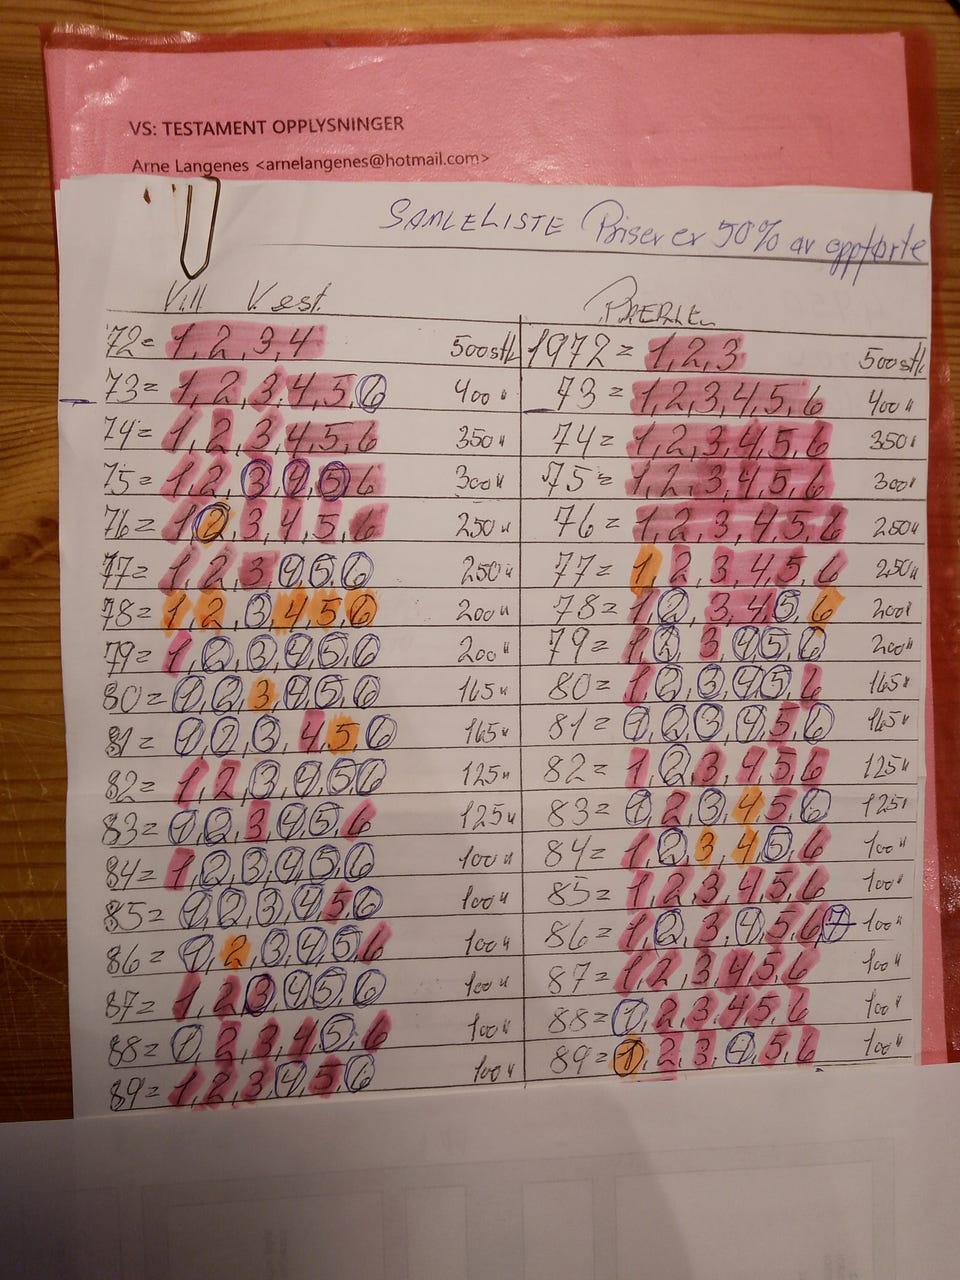 VS: TESTAMENT OPPLYSNINGER
Arne Langenes <arnelangenes@hotmail.com>
SAMLELISTE Priser er 50% av oppførte
Vill Vest
72= 1, 2, 3, 4 500 stk
73= 1, 2, 3, 4, 5, 6 400 "
74= 1, 2, 3, 4, 5, 6 350 "
75= 1, 2, 3, 4, 5, 6 300 "
76= 1, 2, 3, 4, 5, 6 250 "
77= 1, 2, 3, 4, 5, 6 250 "
78= 1, 2, 3, 4, 5, 6 200 "
79= 1, 2, 3, 4, 5, 6 200 "
80= 1, 2, 3, 4, 5, 6 165 "
81= 1, 2, 3, 4, 5, 6 165 "
82= 1, 2, 3, 4, 5, 6 125 "
83= 1, 2, 3, 4, 5, 6 125 "
84= 1, 2, 3, 4, 5, 6 100 "
85= 1, 2, 3, 4, 5, 6 100 "
86= 1, 2, 3, 4, 5, 6 100 "
87= 1, 2, 3, 4, 5, 6 100 "
88= 1, 2, 3, 4, 5, 6 100 "
89= 1, 2, 3, 4, 5, 6 100 "
1972= 1, 2, 3 500 stk
73= 1, 2, 3, 4, 5, 6 400 "
74= 1, 2, 3, 4, 5, 6 350 "
75= 1, 2, 3, 4, 5, 6 300 "
76= 1, 2, 3, 4, 5, 6 250 "
77= 1, 2, 3, 4, 5, 6 250 "
78= 1, 2, 3, 4, 5, 6 200 "
79= 1, 2, 3, 4, 5, 6 200 "
80= 1, 2, 3, 4, 5, 6 165 "
81= 1, 2, 3, 4, 5, 6 165 "
82= 1, 2, 3, 4, 5, 6 125 "
83= 1, 2, 3, 4, 5, 6 125 "
84= 1, 2, 3, 4, 5, 6 100 "
85= 1, 2, 3, 4, 5, 6 100 "
86= 1, 2, 3, 4, 5, 6, 7 100 "
87= 1, 2, 3, 4, 5, 6 100 "
88= 1, 2, 3, 4, 5, 6 100 "
89= 1, 2, 3, 4, 5, 6 100 "